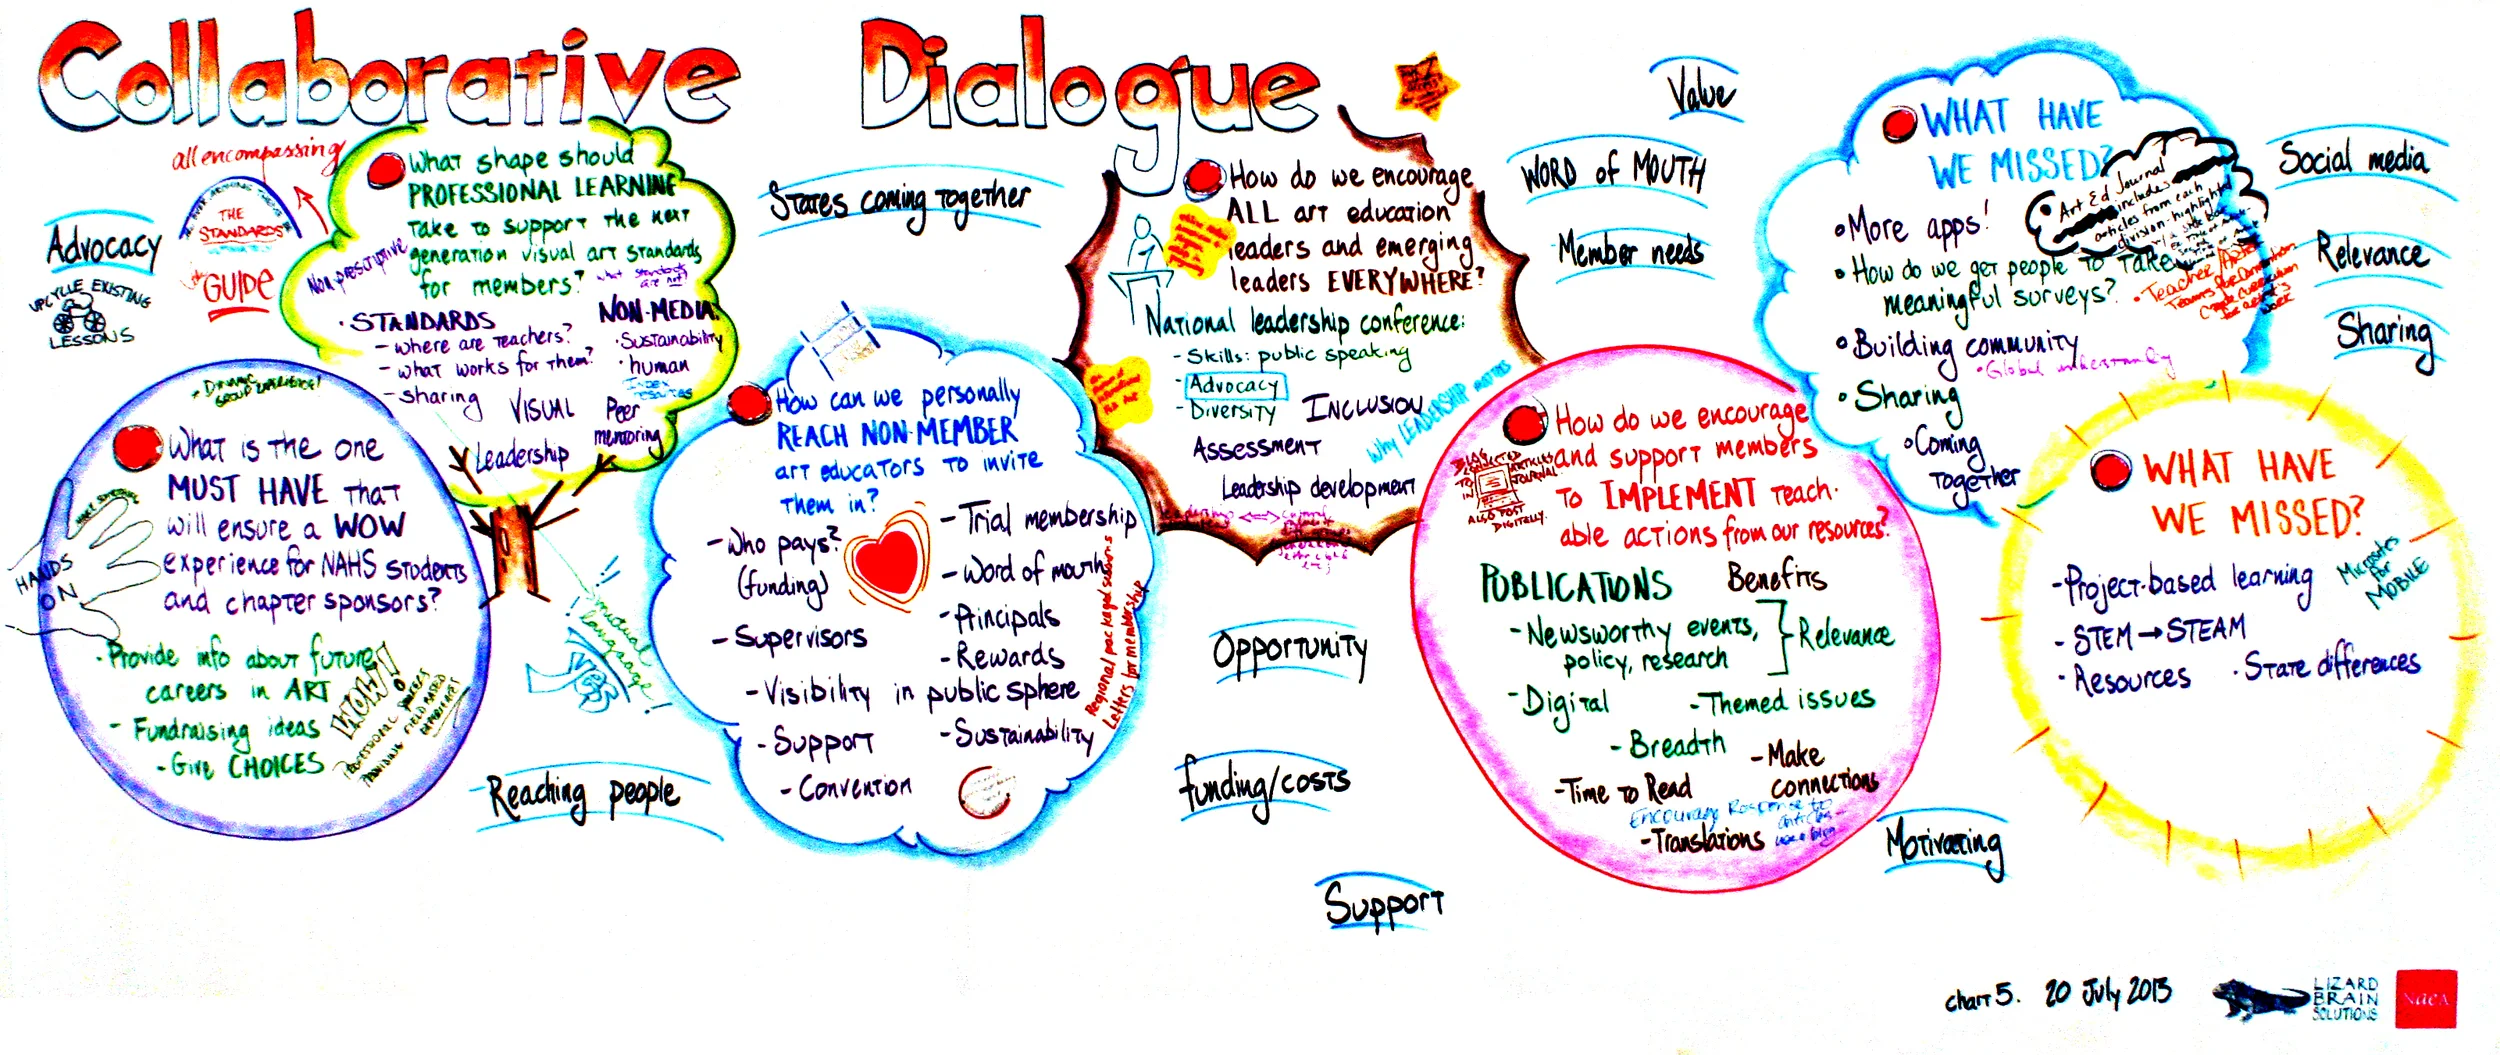 Collaborative Dialogue
all encompassing
THE
STANDARDS
the
GUIDE
Advocacy
UPCYCLE EXISTING
LESSONS
What shape should
PROFESSIONAL LEARNING
Take to support the next
generation visual art standards
for members?
Non-prescriptive
what standards
are not?
• STANDARDS
- where are teachers?
- what works for them?
- sharing
NON-MEDIA
• Sustainability
• human
VISUAL
Peer
mentoring
Leadership
+ DYNAMIC
GROUP EXPERIENCE!
What is the one
MUST HAVE that
will ensure a WOW
experience for NAHS students
and chapter sponsors?
HANDS
ON
- Provide info about future
careers in ART
- Fundraising ideas
- Give CHOICES
WOW!
PROFESSIONAL
PROVIDING FIELD BASED
Yes
Reaching people
States coming together
How can we personally
REACH NON-MEMBER
art educators to invite
them in?
- Who pays?
(funding)
- Supervisors
- Visibility in public sphere
- Support
- Convention
- Trial membership
- Word of mouth
- Principals
- Rewards
- Sustainability
Regional packaged sessions
Letters for membership
How do we encourage
ALL art education
leaders and emerging
leaders EVERYWHERE?
National leadership conference:
- Skills: public speaking
- Advocacy
- Diversity
INCLUSION
Assessment
Leadership development
Why LEADERSHIP matters
Opportunity
funding/costs
Support
Value
WORD of MOUTH
Member needs
How do we encourage
and support members
to IMPLEMENT teach-
able actions from our resources?
BLOG
CONNECTED
TO ARTICLES
IN JOURNAL
ALSO POST
DIGITALLY.
PUBLICATIONS
Benefits
- Newsworthy events,
policy, research
Relevance
- Digital
- Themed issues
- Breadth
- Make
connections
- Time to Read
Encourage Response to
articles
- Translations
Motivating
WHAT HAVE
WE MISSED?
• More apps!
• How do we get people to take
meaningful surveys?
• Building community
• Global understanding
• Sharing
• Coming
Together
Art Ed Journal
includes
articles from each
division-highlighted
Social media
Relevance
Sharing
WHAT HAVE
WE MISSED?
- Project-based learning
- STEM → STEAM
- Resources
• State differences
Microsites
for
MOBILE
chart 5. 20 July 2013
LIZARD
BRAIN
SOLUTIONS
NaeA